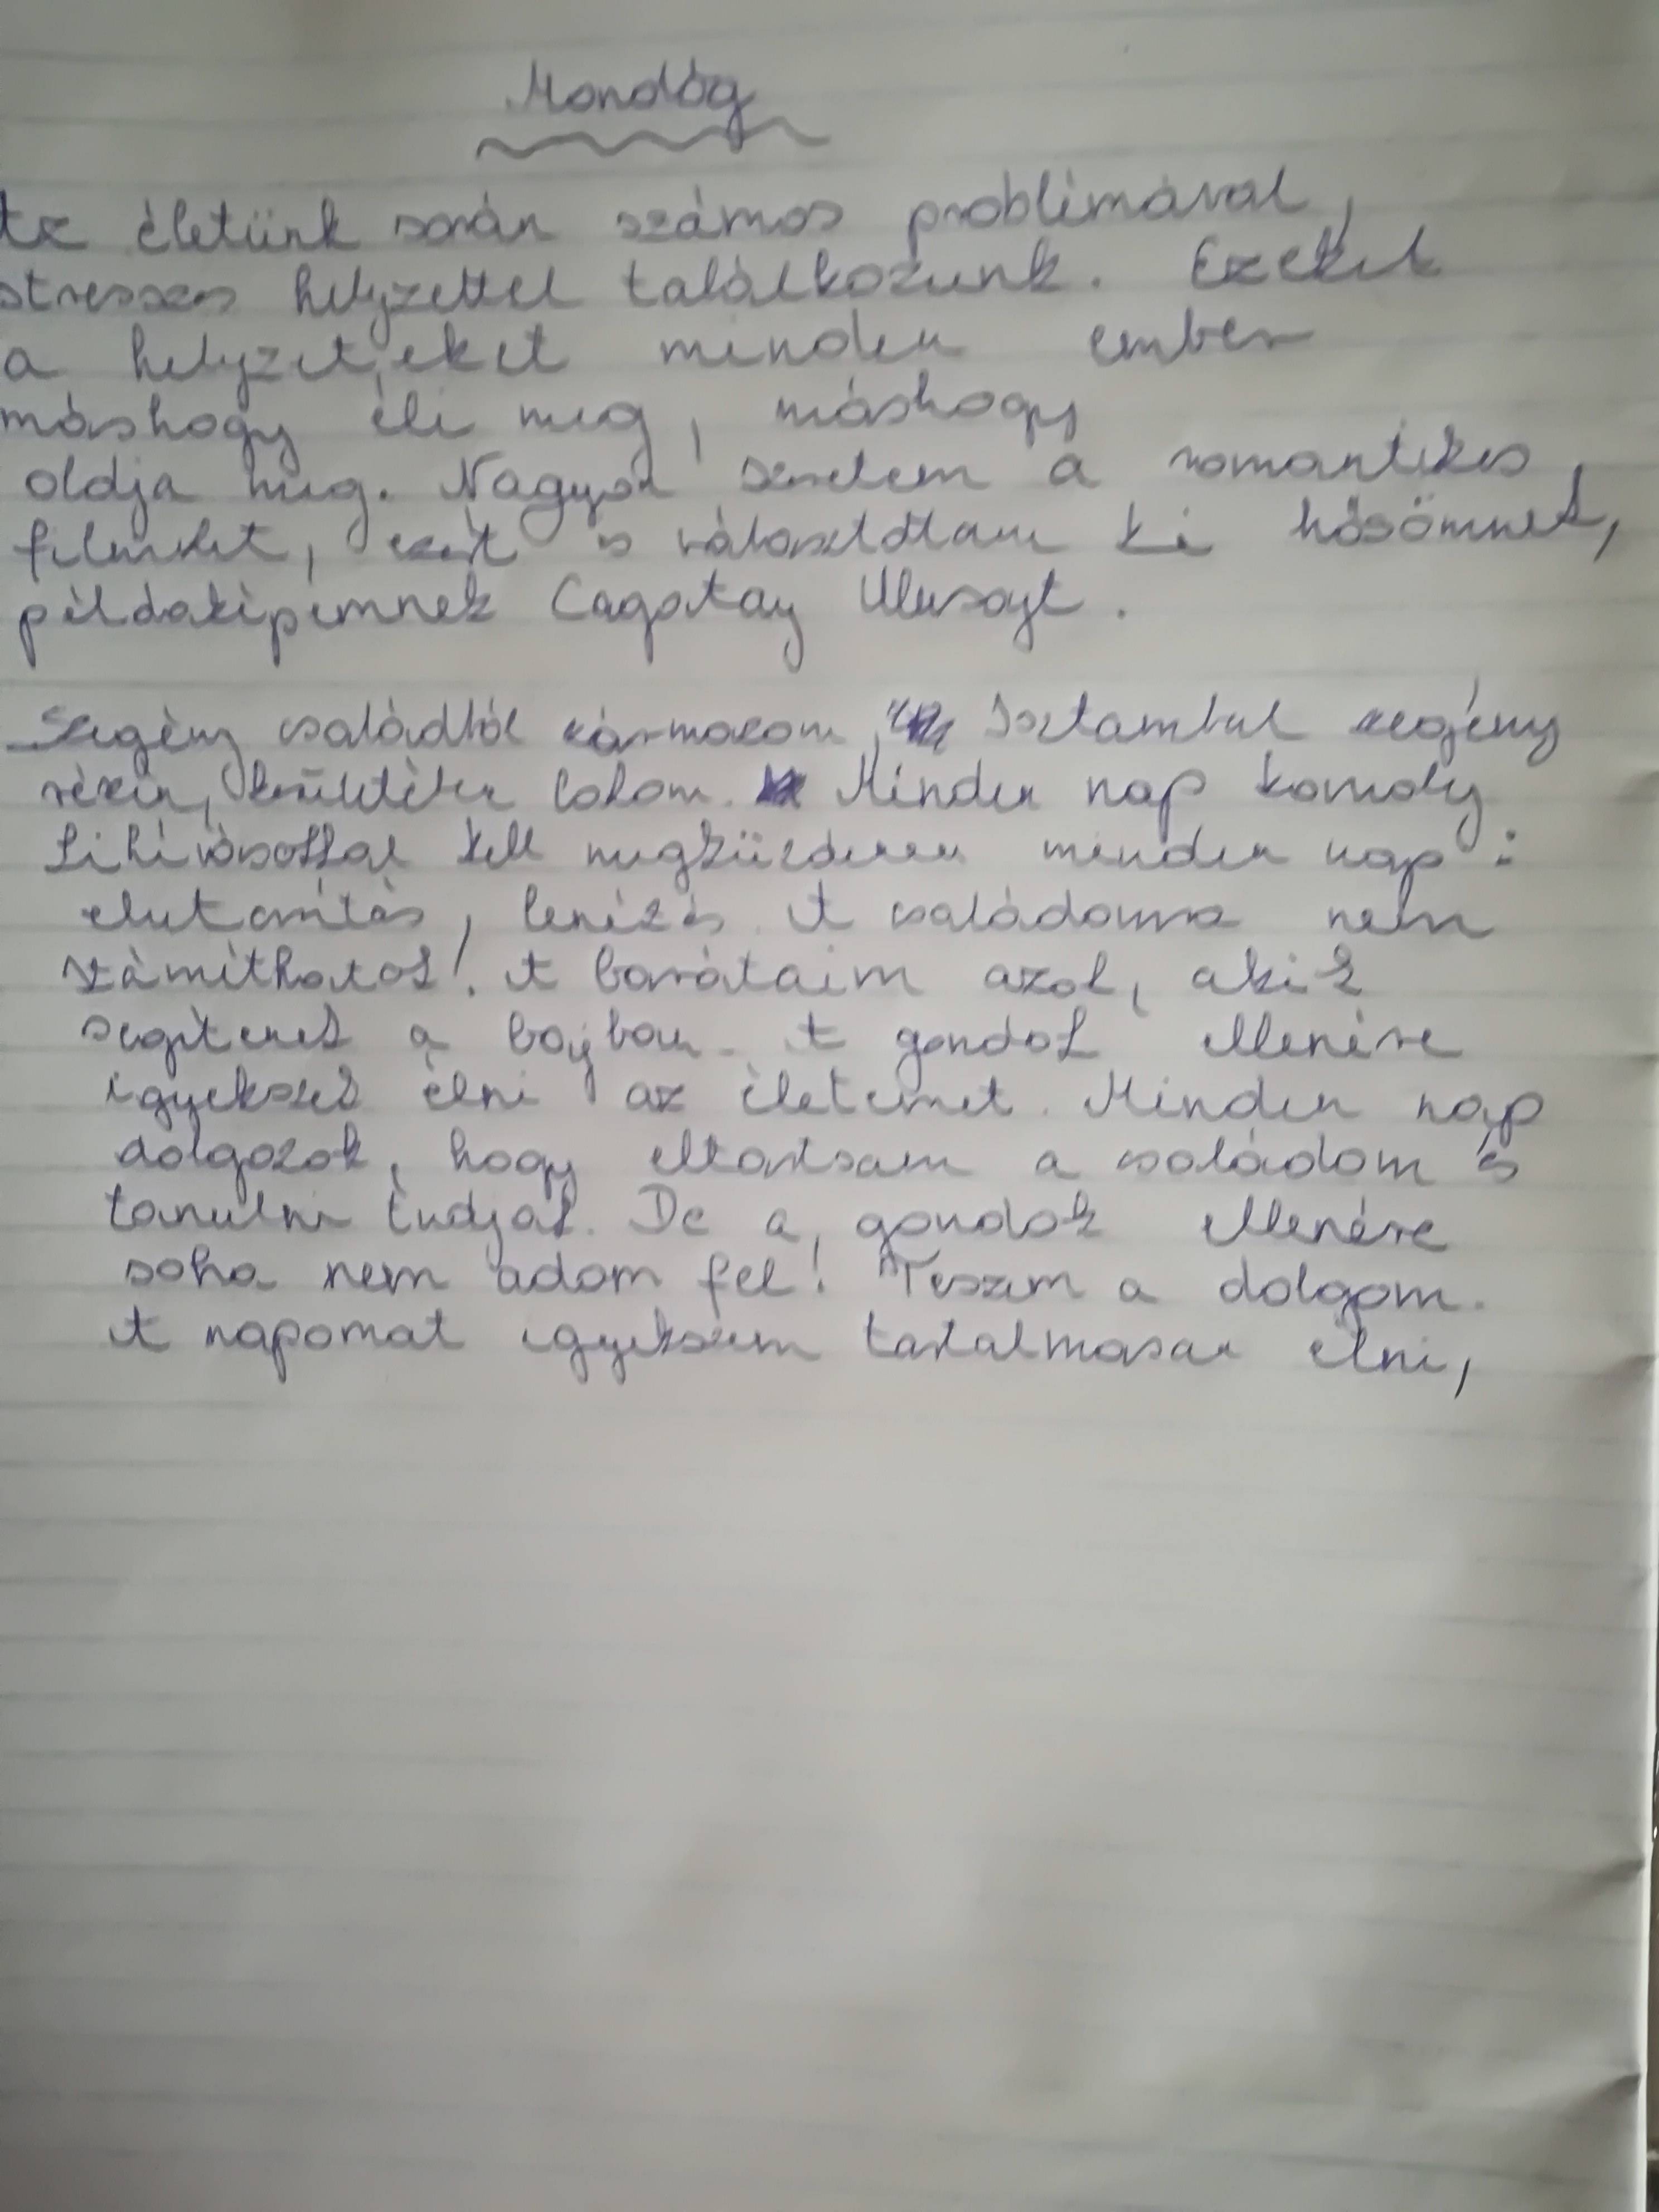 Monológ
Az életünk során számos problémával,
stresszes helyzettel találkozunk. Ezeket
a helyzeteket minden ember
máshogy éli meg, máshogy
oldja meg. Nagyon szeretem a romantikus
filmeket, ezért is választottam ki hősömnek,
példaképemnek Cagatay Ulusoyt.
Szegény családból származom, Isztambul szegény
részén, lakom. Minden nap komoly
kihívásokkal kell megküzdenem minden nap:
elutasítás, lenézés. A családomra nem
számíthatok! A barátaim azok, akik
segítenek a bajban. A gondok ellenére
igyekszek élni az életemet. Minden nap
dolgozok, hogy eltartsam a családom és
tanulni tudjak. De a gondok ellenére
soha nem adom fel! Teszem a dolgom.
A napomat igyekszem tartalmasan élni,